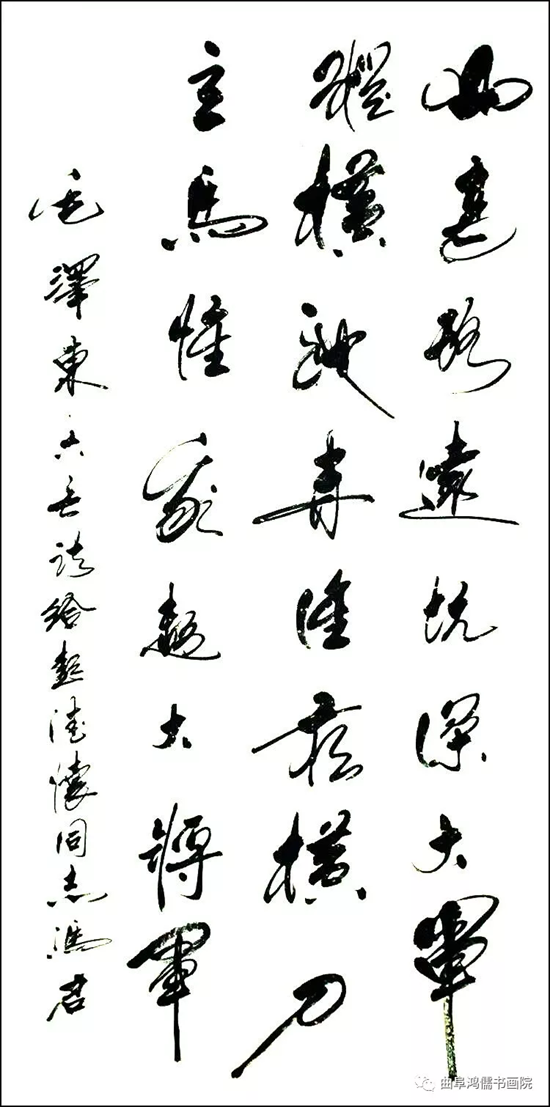 山高路遠坑深大軍
縱橫馳奔誰敢橫刀
立馬惟我彭大將軍
毛澤東六言詩給彭德懷同志馮君
曲阜鸿儒书画院